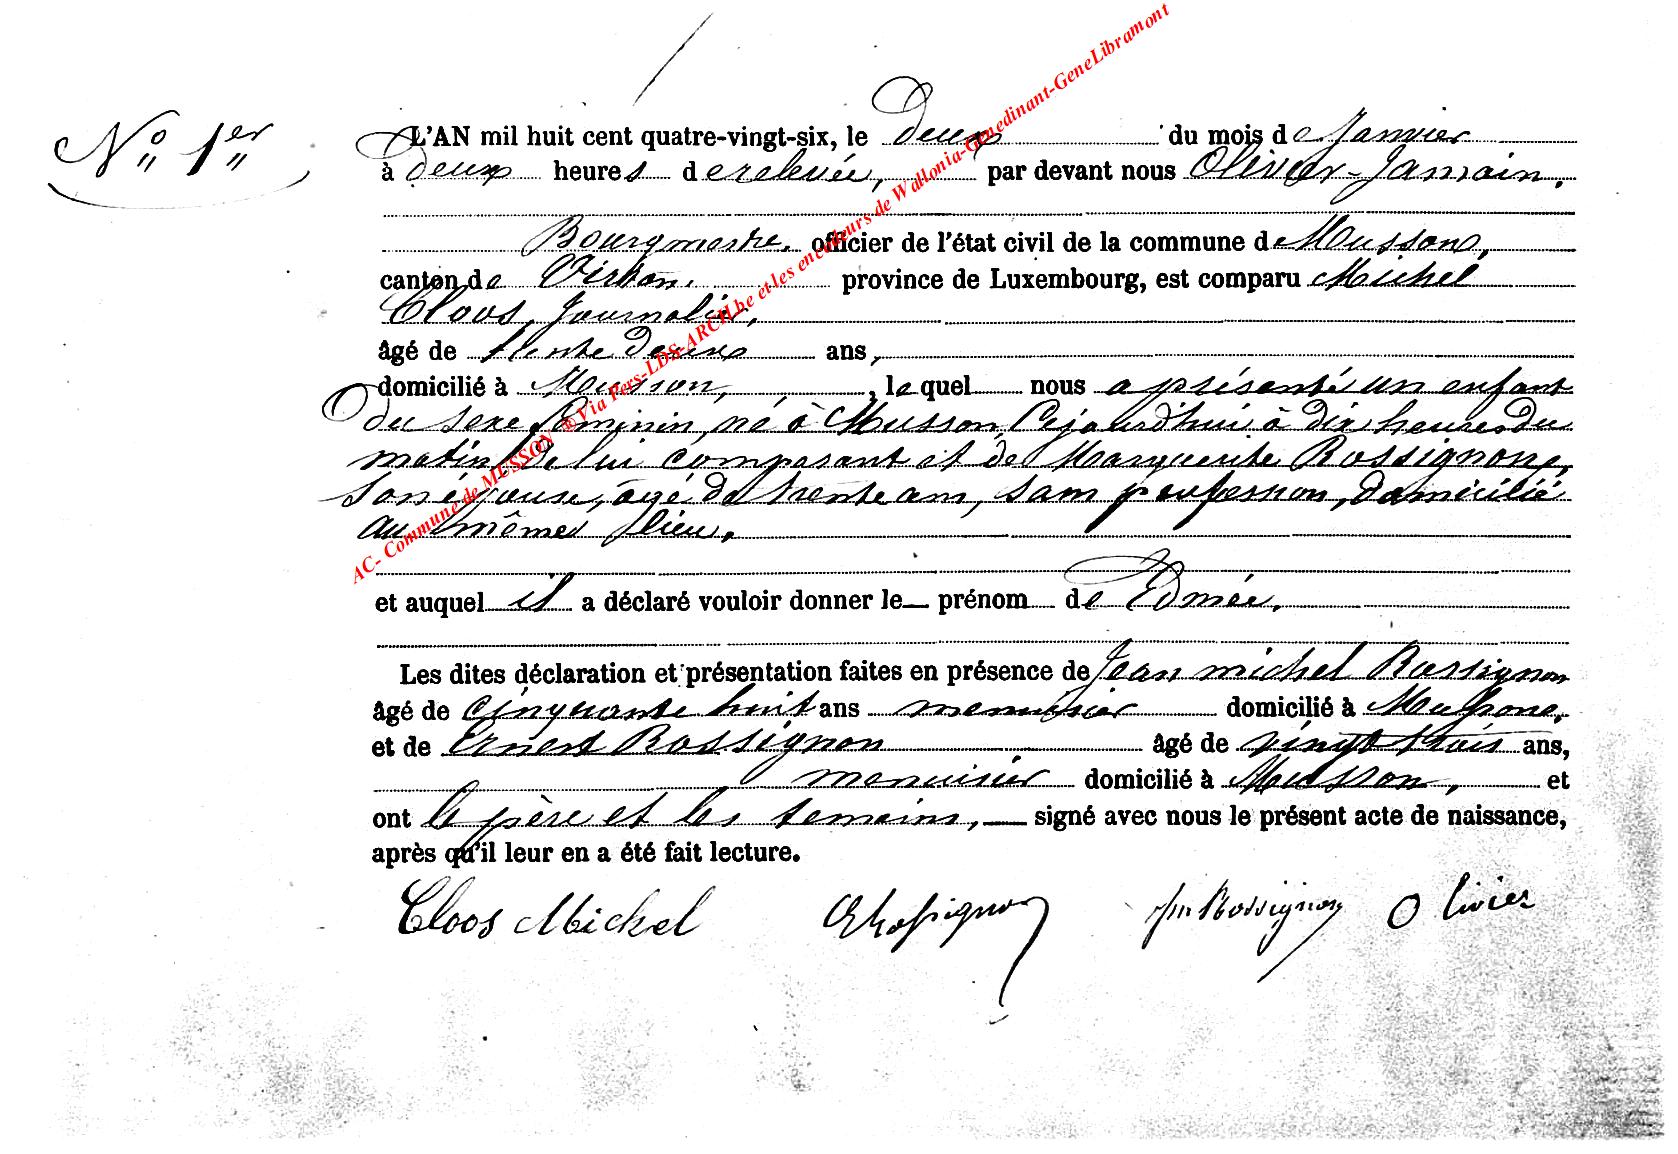 N° 1er
L'AN mil huit cent quatre-vingt-six, le deux du mois de Janvier
à deux heures de relevée, par devant nous Olivier-Jamain.
Bourgmestre. officier de l'état civil de la commune de Musson,
canton de Virton. province de Luxembourg, est comparu Michel
Cloos, Journalier,
âgé de trente deux ans,
domicilié à Musson, , le quel nous a présenté un enfant
du sexe féminin, né à Musson, Cejourd'hui à dix heures du
matin de lui comparant et de Marguerite Rossignon,
son épouse, âgé de trente ans, sans profession, domicilié
au même lieu.
et auquel il a déclaré vouloir donner le prénom de Edmée.
Les dites déclaration et présentation faites en présence de Jean michel Rossignon
âgé de cinquante huit ans menuisier domicilié à Musson,
et de Ernest Rossignon âgé de vingt trois ans,
menuisier domicilié à Musson, et
ont le père et les temoins, signé avec nous le présent acte de naissance,
après qu'il leur en a été fait lecture.
Cloos Michel E Rossignon Jm Rossignon Olivier
AC- Commune de MUSSON ®Via Pers-LDS-ARCH.be et les encodeurs de Wallonia-Genedinant-GeneLibramont